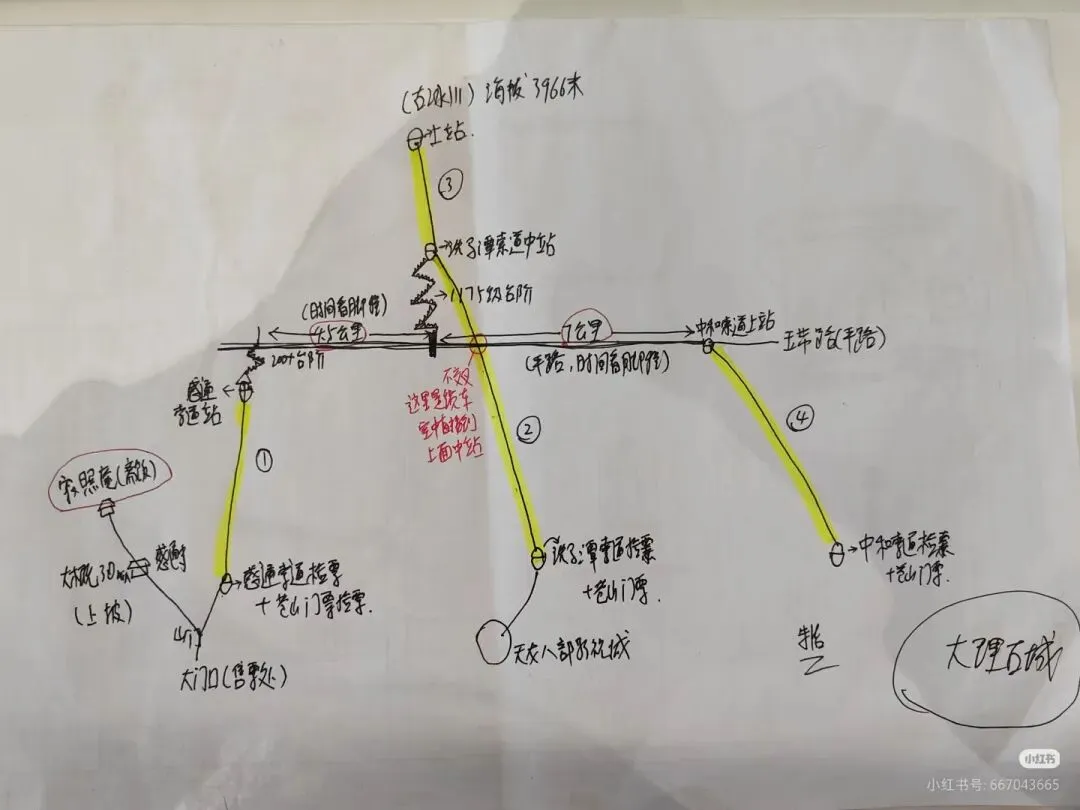 (古冰川) 海拔3966米
上站.
③
洗马潭索道中站
1175级台阶
(时间看脚程)
4.5公里
7公里
中和索道上站
玉带路(平路)
200+台阶
(平路,时间看脚程)
感通
索道站
不交叉
这里是缆车
空中直接到
上面中站
②
④
①
寂照庵(斋饭)
感通寺
大概30min
(上坡)
感通索道检票
+苍山门票检票.
洗马潭索道检票
+苍山门票.
中和索道检票
+苍山门票.
大门口(售票处)
天龙八部影视城
大理古城
小红书
小红书号: 667043665